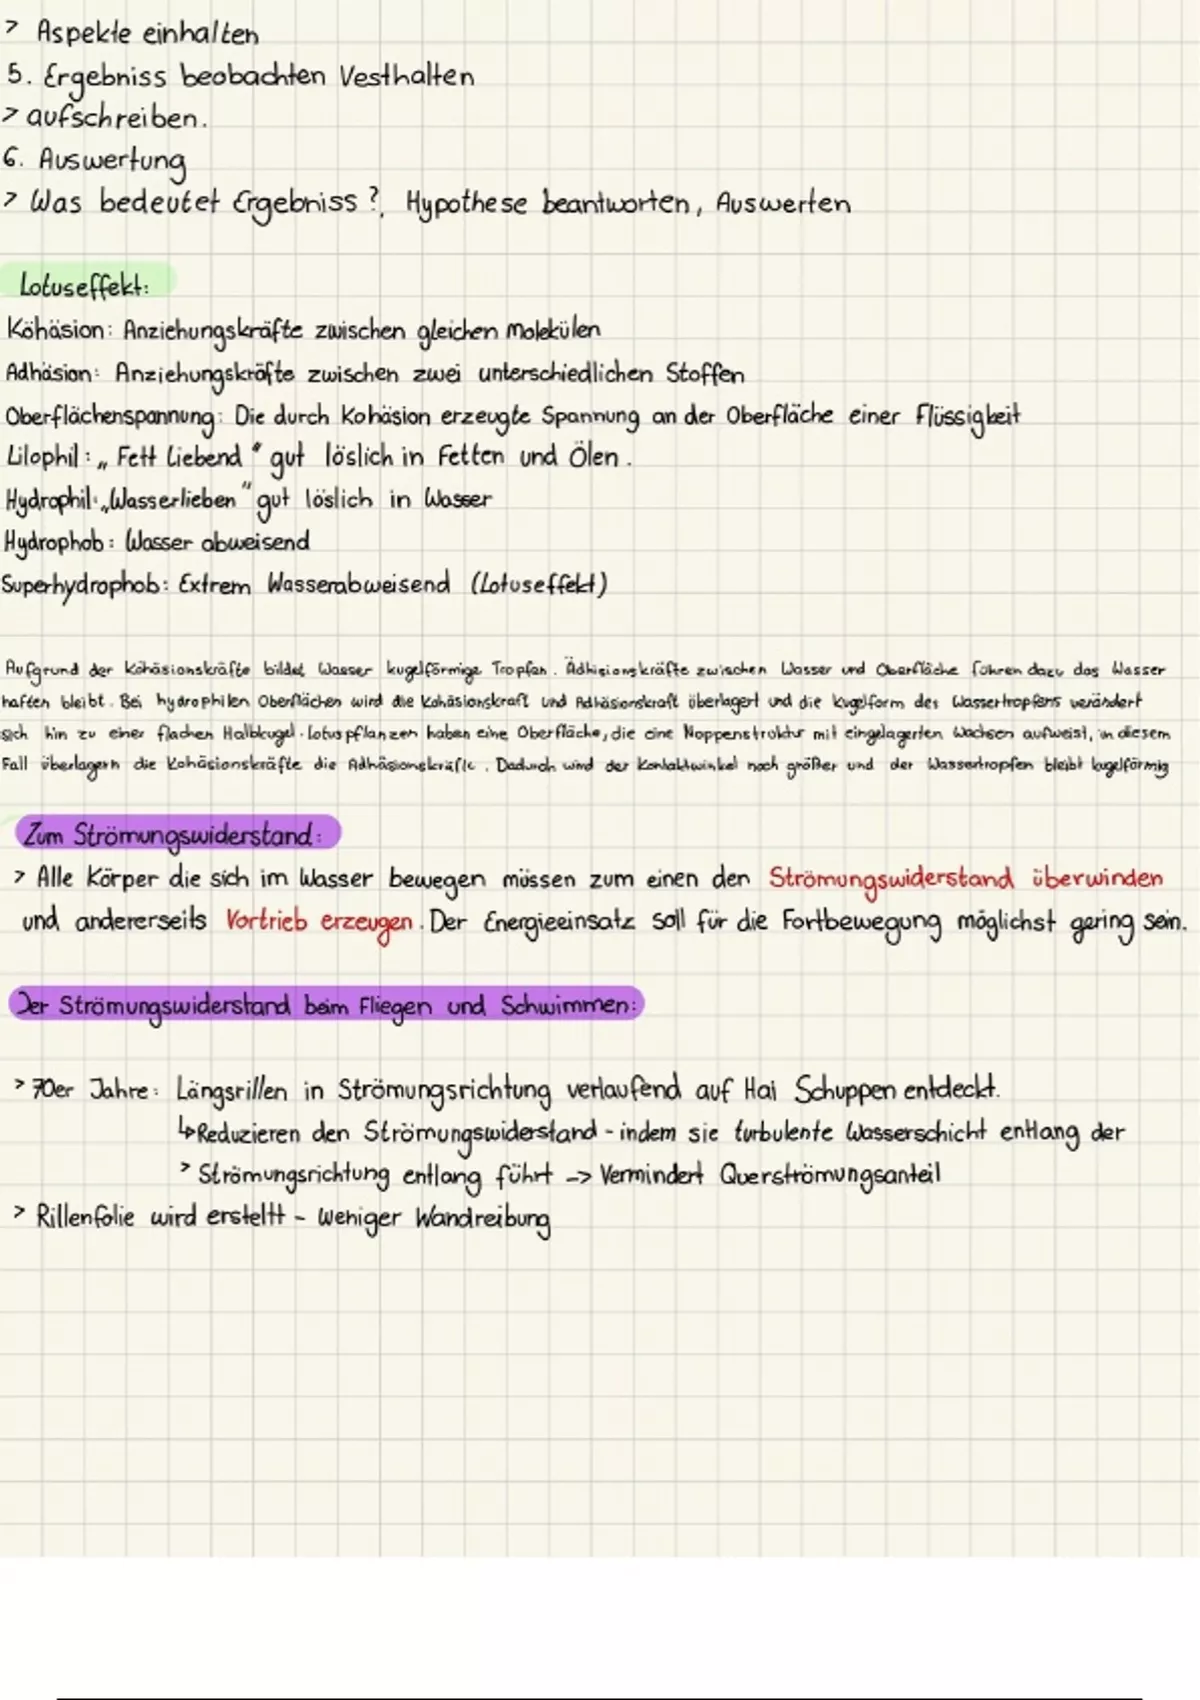 > Aspekte einhalten
5. Ergebniss beobachten Vesthalten
> aufschreiben.
6. Auswertung
> Was bedeutet Ergebniss?, Hypothese beantworten, Auswerten
Lotuseffekt:
Köhäsion: Anziehungskräfte zwischen gleichen Molekülen
Adhäsion: Anziehungskräfte zwischen zwei unterschiedlichen Stoffen
Oberflächenspannung: Die durch Kohäsion erzeugte Spannung an der Oberfläche einer Flüssigkeit
Lilophil: „Fett Liebend" gut löslich in Fetten und Ölen.
Hydrophil: „Wasserlieben" gut löslich in Wasser
Hydrophob: Wasser abweisend
Superhydrophob: Extrem Wasserabweisend (Lotuseffekt)
Aufgrund der Kohäsionskräfte bildet Wasser kugelförmige Tropfen. Ädhisionskräfte zwischen Wasser und Oberfläche führen dazu das Wasser
haften bleibt. Bei hydrophilen Oberflächen wird die Kohäsionskraft und Adhäsionskraft überlagert und die Kugelform des Wassertropfens verändert
sich hin zu einer flachen Halbkugel. Lotuspflanzen haben eine Oberfläche, die eine Noppenstruktur mit eingelagerten Wachsen aufweist, in diesem
Fall überlagern die Kohäsionskräfte die Adhäsionskräfte. Dadurch wird der Kontaktwinkel noch größer und der Wassertropfen bleibt kugelförmig
Zum Strömungswiderstand:
> Alle Körper die sich im Wasser bewegen müssen zum einen den Strömungswiderstand überwinden
und andererseits Vortrieb erzeugen. Der Energieeinsatz soll für die Fortbewegung möglichst gering sein.
Der Strömungswiderstand beim Fliegen und Schwimmen:
> 70er Jahre: Längsrillen in Strömungsrichtung verlaufend auf Hai Schuppen entdeckt.
↳Reduzieren den Strömungswiderstand - indem sie turbulente Wasserschicht entlang der
> Strömungsrichtung entlang führt -> Vermindert Querströmungsanteil
> Rillenfolie wird erstellt - weniger Wandreibung